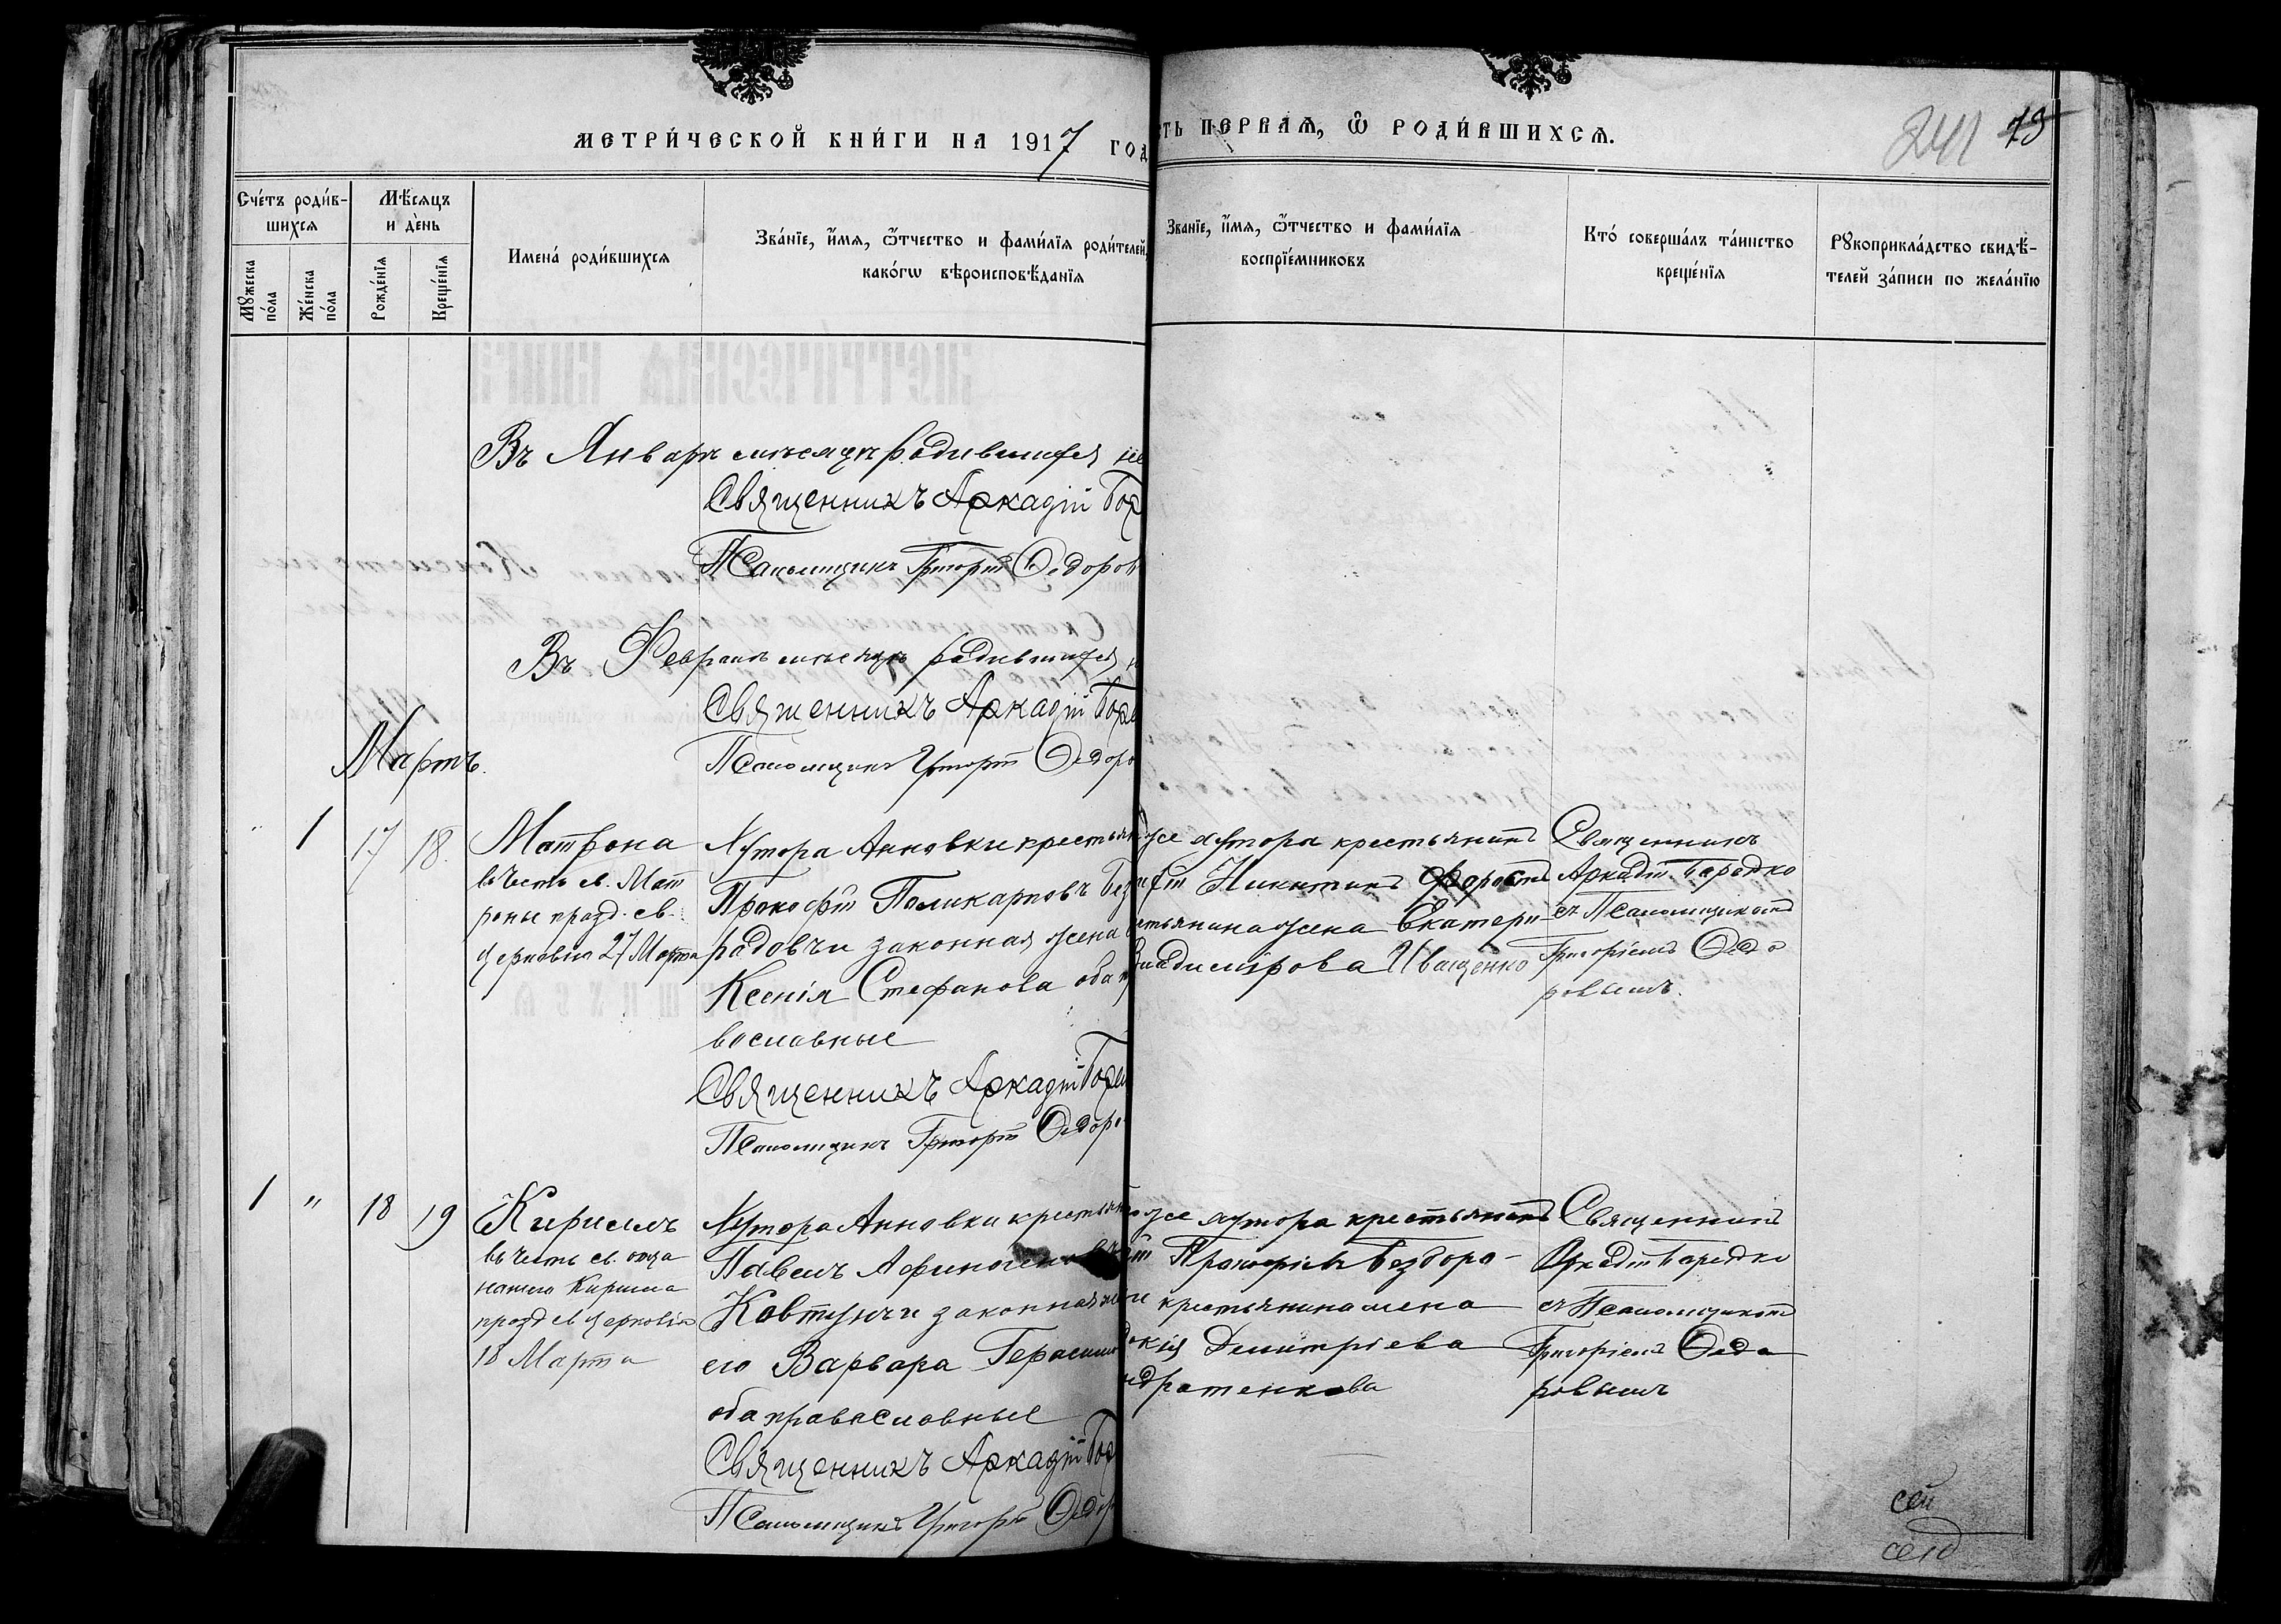 МЕТРИ́ЧЕСКОЙ КНИ́ГИ НА 1917 ГОД
ТЬ ПЕРВАЯ, Ѽ РОДИ́ВШИХСЯ.
241 73
Сче́тъ роди́в-
шихся
Мѣ́сяцъ
и де́нь
Мꙋ́жеска
по́ла
Же́нска
по́ла
Рожде́нїя
Креще́нїя
Имена́ роди́вшихся
Зва́нїе, и҆́мя, ѻ҆́тчество и фами́лїя роди́телей,
како́гѡ вѣроисповѣ́данїя
Званїе, и҆́мя, ѻ҆́тчество и фами́лїя
воспрїе́мниковъ
Кто́ соверша́лъ та́инство
креще́нїя
Рꙋкоприкла́дство свидѣ́-
телей за́писи по жела́нїю
Въ Январѣ мѣсяцѣ родившихся не
Священникъ Аркадій Бор
Псаломщикъ Григорій Ѳедоров
Въ Февралѣ мѣсяцѣ родившихся н
Священникъ Аркадій Бор
Псаломщикъ Григорій Ѳедоро
Мартъ.
1 17 18
Матрона
въ честь св. Мат
роны празд. св.
церковью 27 Марта
Хутора Анновки крестьян
Прокофій Поликарповъ Без
радовъ и законная жена
Ксенія Стефанова оба п
вославные
Священникъ Аркадій Бор
Псаломщикъ Григорій Ѳедоро
же хутора крестьянинъ
Никитинъ
стьянина жена Екатери-
Владимірова Иващенко
Священникъ
Аркадій Боредко
съ Псаломщикомъ
Григоріемъ Ѳедо
ровымъ.
1 " 18 19
Кириллъ
въ честь св. отца
нашего Кирилла
празд св церковію
18 Марта
Хутора Анновки крестьян
Павелъ Афиноген
Ковтунъ и законная же
его Варвара Герасим
оба православные
Священникъ Аркадій Бор
Псаломщикъ Григорій Ѳедор
же хутора крестьянинъ
Прокофіевъ Безборо-
крестьянина жена
докія Димитріева
ндратенкова
Священникъ
Аркадій Боредко
съ Псаломщикомъ
Григоріемъ Ѳедо
ровымъ